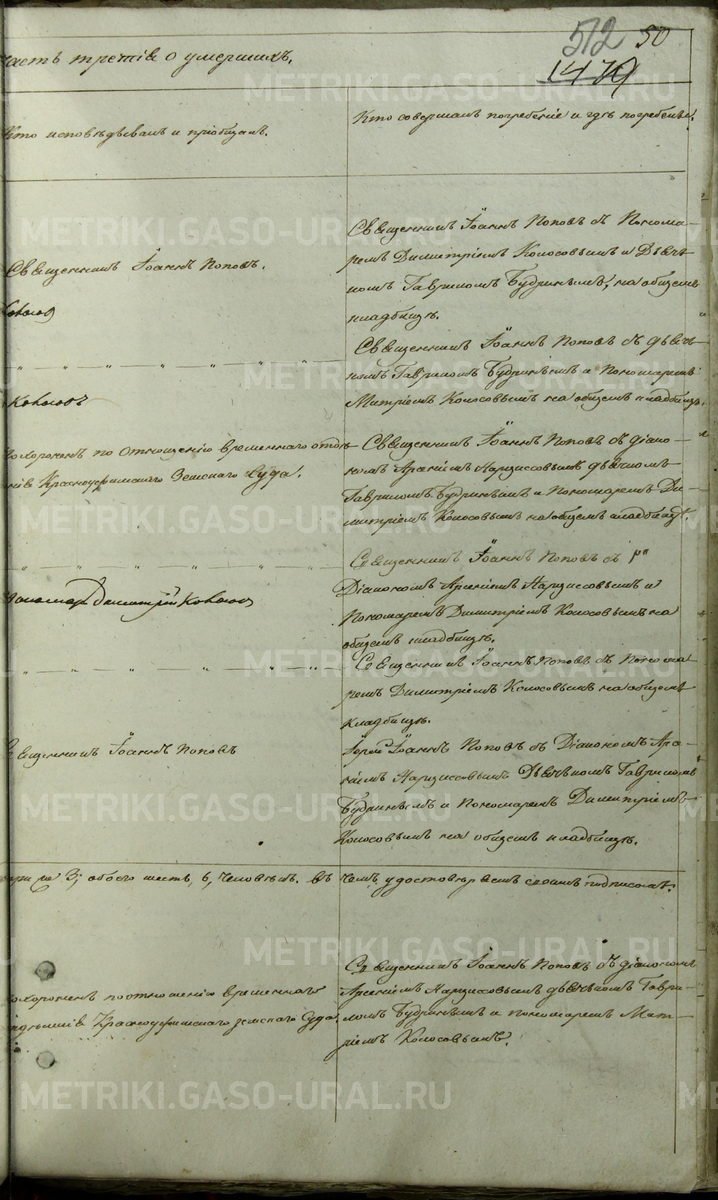 512 50
1479
часть третія о умершихъ.
Кто исповѣдывалъ и пріобщалъ.
Кто совершалъ погребеніе и гдѣ погребены.
Священникъ Іоаннъ Поповъ.
Священникъ Іоаннъ Поповъ съ Понома-
ремъ Димитріемъ Колосовымъ и Дьячь-
комъ Гавриломъ Будринымъ, на общемъ
кладбищѣ.
Священникъ Іоаннъ Поповъ съ дьячь-
комъ Гавриломъ Будринымъ и Пономаремъ
Митріемъ Колосовымъ на общемъ кладбищѣ.
похороненъ по отношенію временнаго отдѣ-
ленія Красноуфимскаго Земскаго Суда.
Священникъ Іоаннъ Поповъ съ діако-
номъ Арсеніемъ Нарциссовымъ дьячкомъ
Гавриломъ Будринымъ и Пономаремъ Ди-
митріемъ Колосовымъ на общемъ кладбищѣ.
Священникъ Іоаннъ Поповъ съ
Діакономъ Арсеніемъ Нарциссовымъ и
Пономаремъ Димитріемъ Колосовымъ на
общемъ кладбищѣ.
Пономарь Димитрій Колосовъ
Священникъ Іоаннъ Поповъ съ Понома-
ремъ Димитріемъ Колосовымъ на общемъ
кладбищѣ.
Священникъ Іоаннъ Поповъ
Іерей Іоаннъ Поповъ съ Діакономъ Арсе-
ніемъ Нарциссовымъ Дьячкомъ Гавриломъ
Будринымъ и Пономаремъ Димитріемъ
Колосовымъ на общемъ кладбищѣ.
3; обоего шесть, 6, человѣкъ. въ чемъ удостовѣряемъ своимъ подписомъ.
похороненъ по отношенію временнаго
отдѣленія Красноуфимскаго земскаго Суда
Священникъ Іоаннъ Поповъ съ діакономъ
Арсеніемъ Нарциссовымъ дьячкомъ Гаври-
ломъ Будринымъ и пономаремъ Мит-
ріемъ Колосовымъ.
METRIKI.GASO-URAL.RU